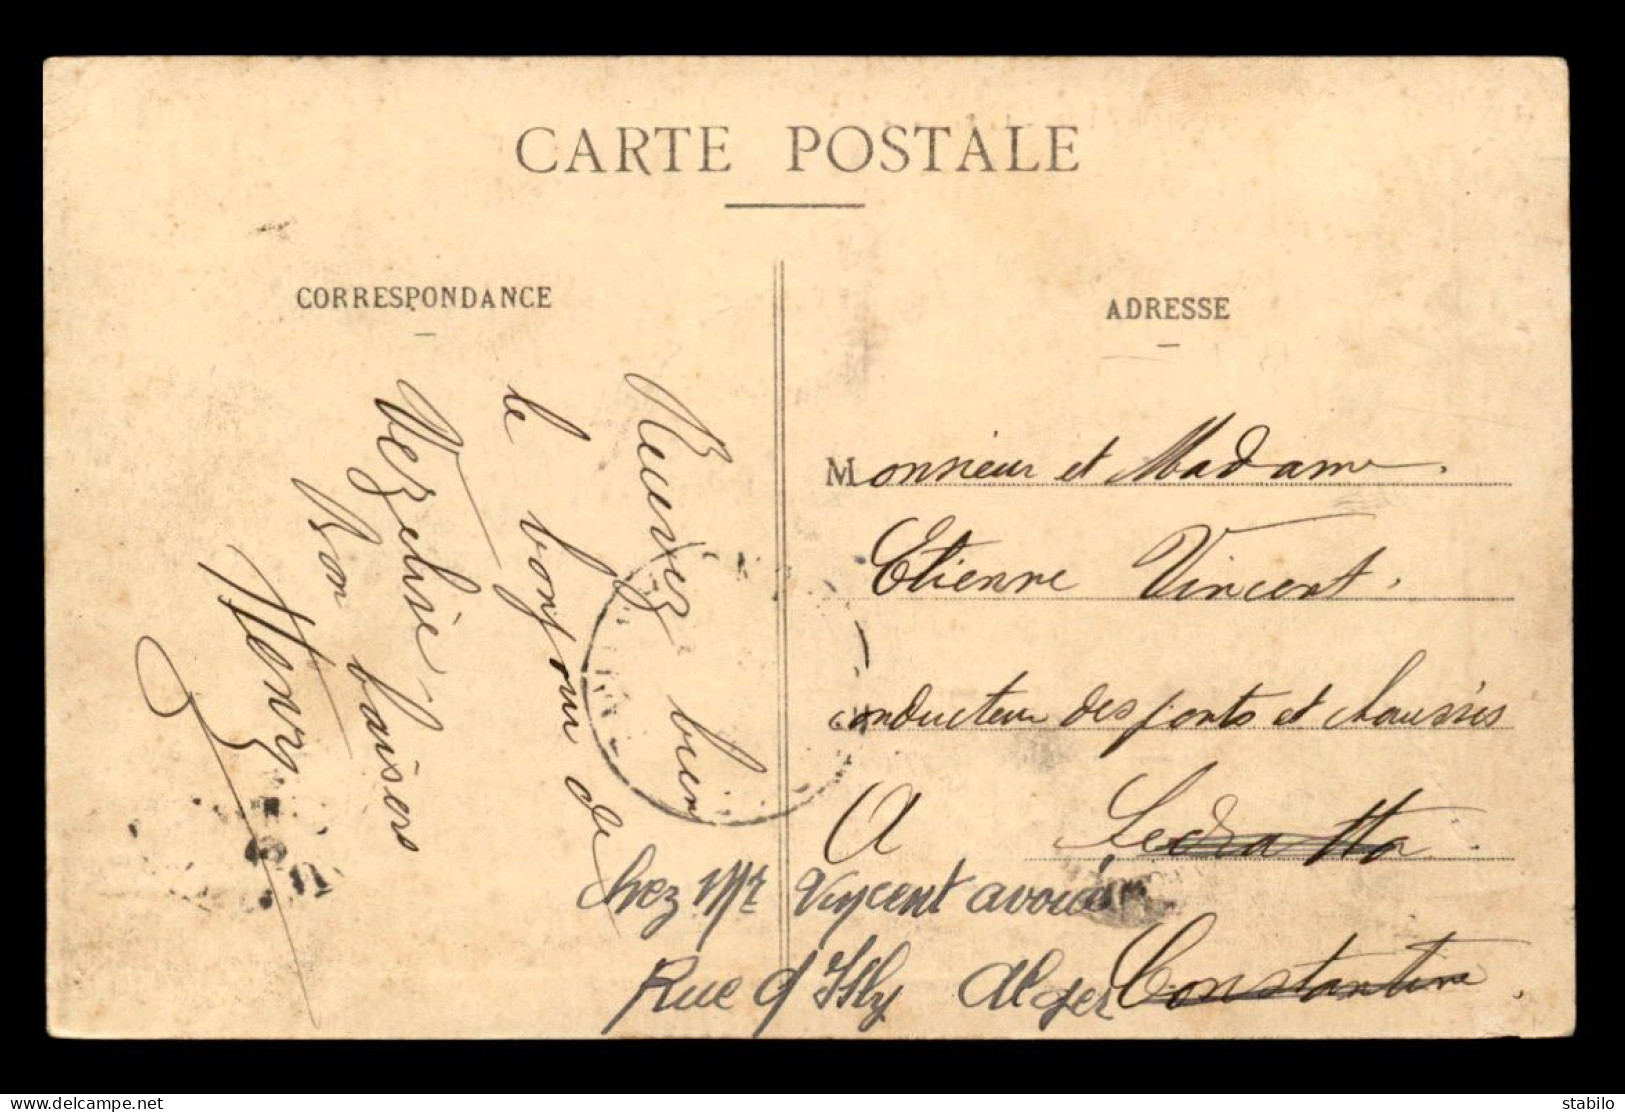 CARTE POSTALE
CORRESPONDANCE
Recevez bien
le bonjour de
Vezelise
Bon baisers
Henry
ADRESSE
Monsieur et Madame
Etienne Vincent.
conducteur des ponts et chaussées
A Sedratta
chez Mr Vincent avoué
Rue d'Isly Alger Constantine
delcampe.net
stabilo